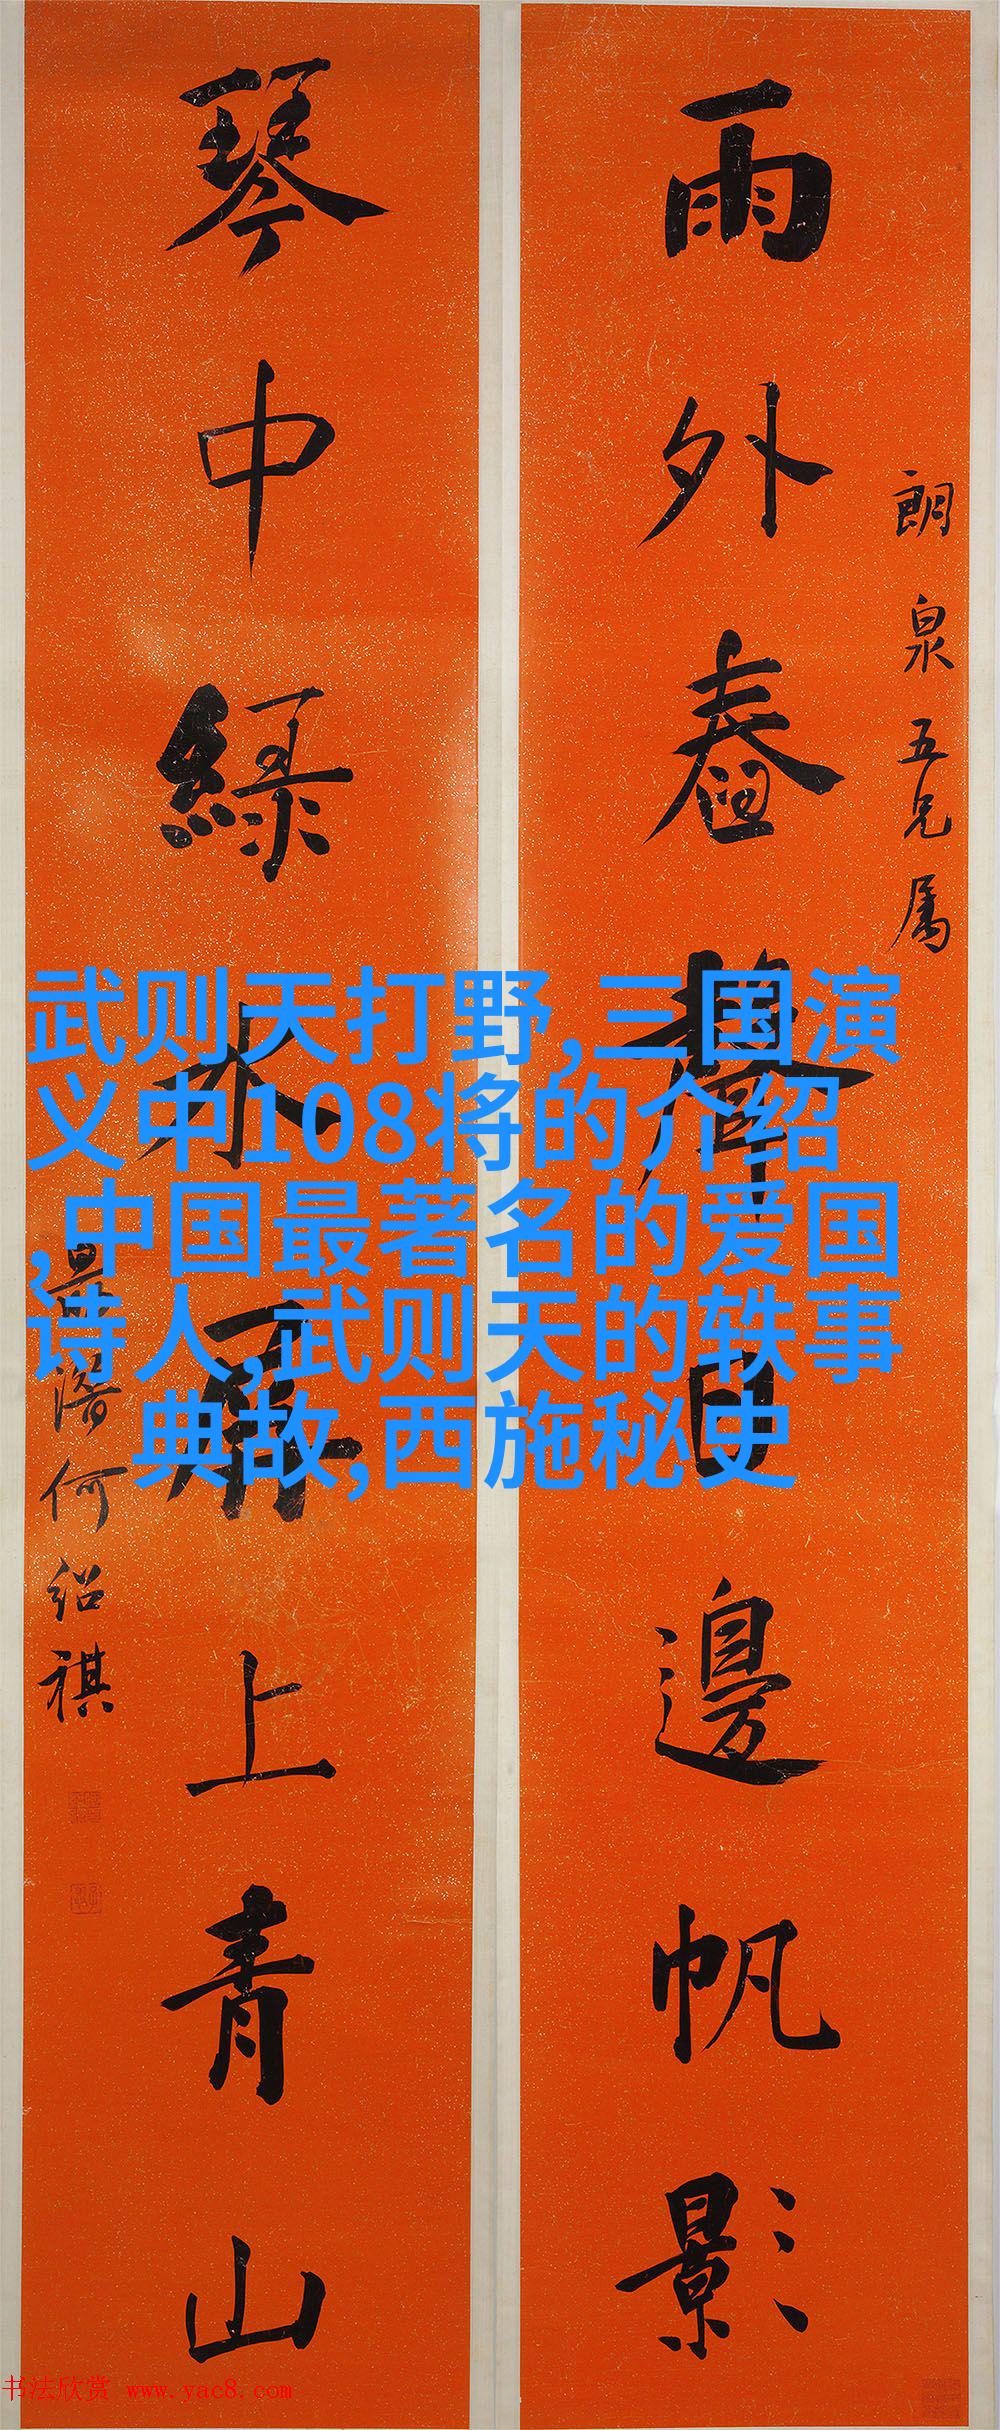 朗泉五兄屬
雨外舂聲日邊帆影
琴中綠水上青山
何紹祺
武则天打野,三国演
义中108将的介绍
,中国最著名的爱国
诗人,武则天的轶事
典故,西施秘史
书法欣赏 www.yac8.com